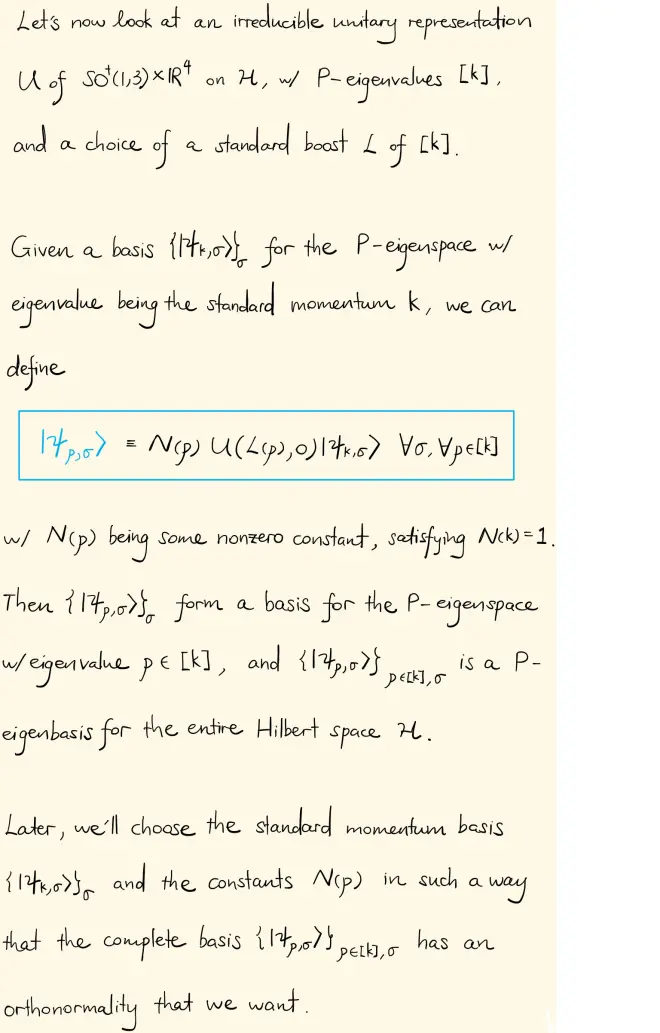 Let's now look at an irreducible unitary representation
U of SO⁺(1,3)×ℝ⁴ on ℋ, w/ P-eigenvalues [k],
and a choice of a standard boost L of [k].
Given a basis {|Ψk,σ⟩}σ for the P-eigenspace w/
eigenvalue being the standard momentum k, we can
define
|Ψp,σ⟩ ≡ N(p) U(L(p),0)|Ψk,σ⟩ ∀σ, ∀p∈[k]
w/ N(p) being some nonzero constant, satisfying N(k)=1.
Then {|Ψp,σ⟩}σ form a basis for the P-eigenspace
w/ eigenvalue p ∈ [k], and {|Ψp,σ⟩}p∈[k],σ is a P-
eigenbasis for the entire Hilbert space ℋ.
Later, we'll choose the standard momentum basis
{|Ψk,σ⟩}σ and the constants N(p) in such a way
that the complete basis {|Ψp,σ⟩}p∈[k],σ has an
orthonormality that we want.